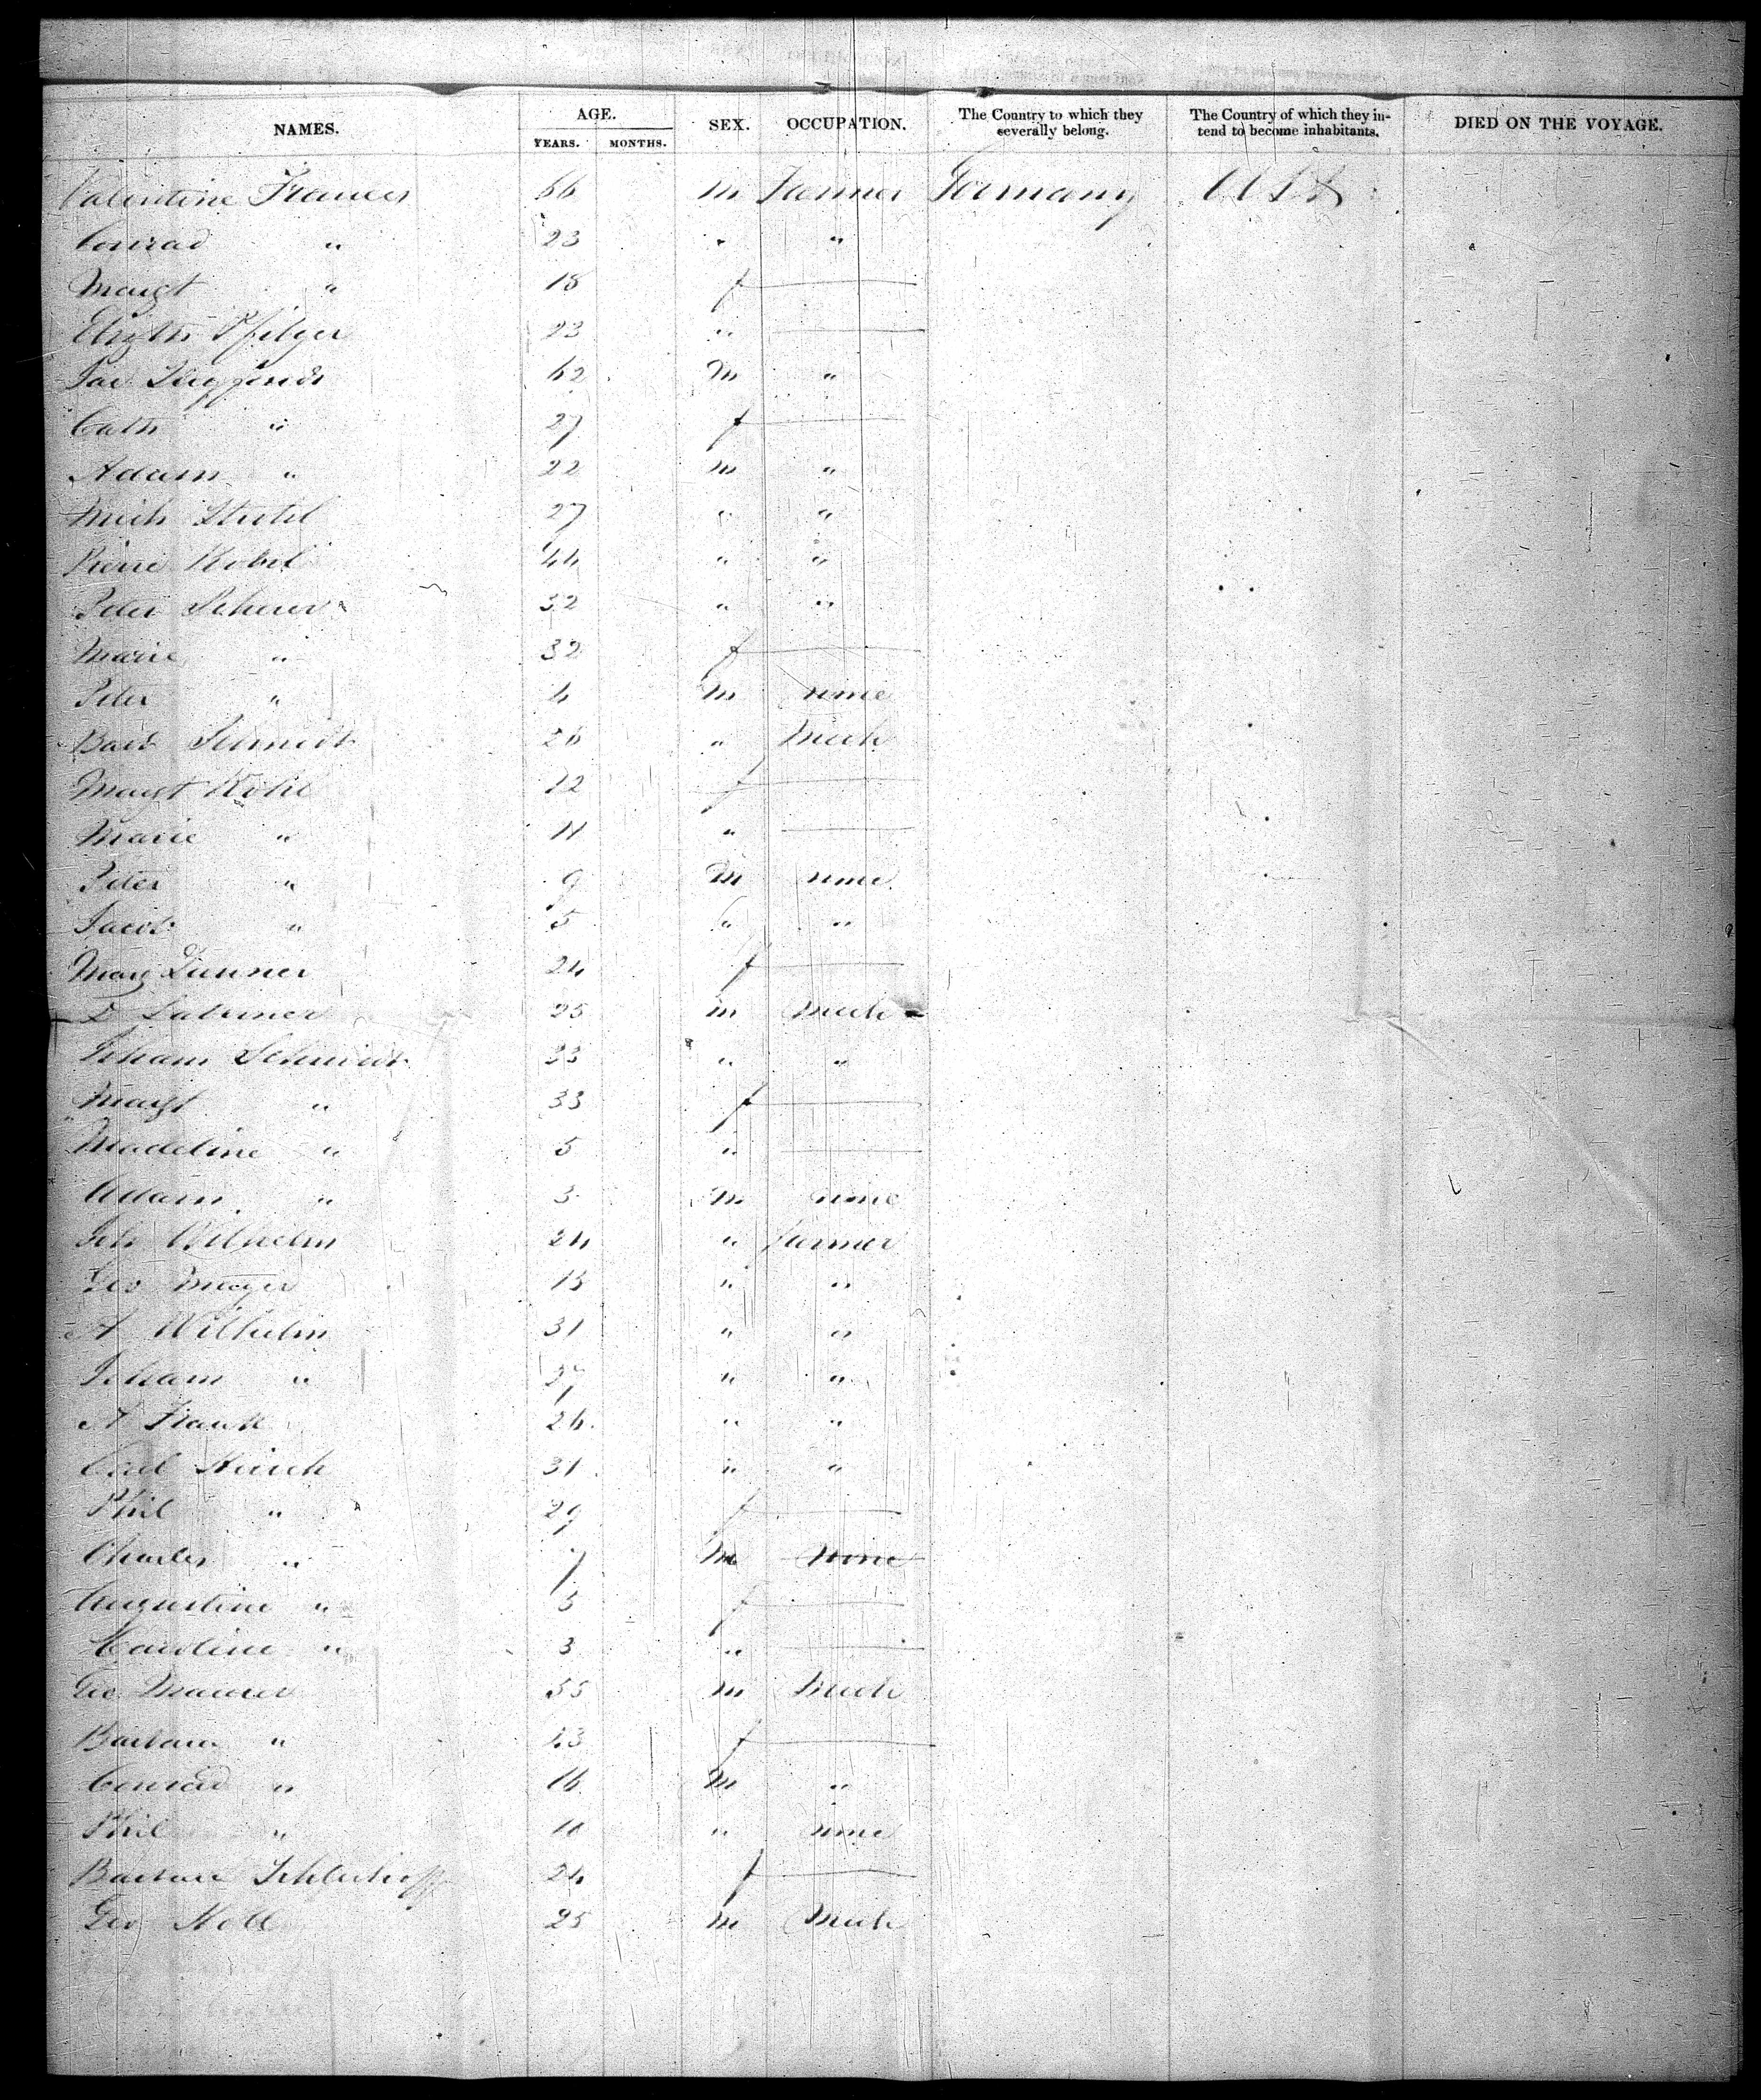 NAMES. AGE. YEARS. MONTHS. SEX. OCCUPATION. The Country to which they severally belong. The Country of which they intend to become inhabitants. DIED ON THE VOYAGE.
Valentine Frances 66 m Farmer Germany USA
Conrad " 23 " "
Margt " 18 f —
Elizth Pfilger 23 " —
62 m "
Cath " 27 f —
Adam " 22 m "
Mich 27 " "
Pierre Kobel 44 " "
Peter Scherer 32 " "
Marie " 32 f —
Peter " 4 m none
Barb Schmidt 26 " Mech
Margt Kohl 12 f —
Marie " 11 " —
Peter " 9 m none
Jacob " 5 " "
Mary Danner 24 f —
25 m Mech
Johann Schmidt 33 " "
Margt " 33 f —
Madeline " 5 " —
Adam " 3 m none
Joh Wilhelm 24 " Farmer
Geo Mayer 18 " "
A Wilhelm 31 " "
Johann " 27 " "
A Frank 26 " "
Carl Hirsch 31 " "
Phil " 29 f —
Charles " 7 m None
Augustine " 5 f —
Caroline " 3 " —
Geo Maurer 55 m Mech
Barbara " 43 f —
Conrad " 16 m "
Phil " " none
Barbara 24 f —
Geo Noll 25 m Mech